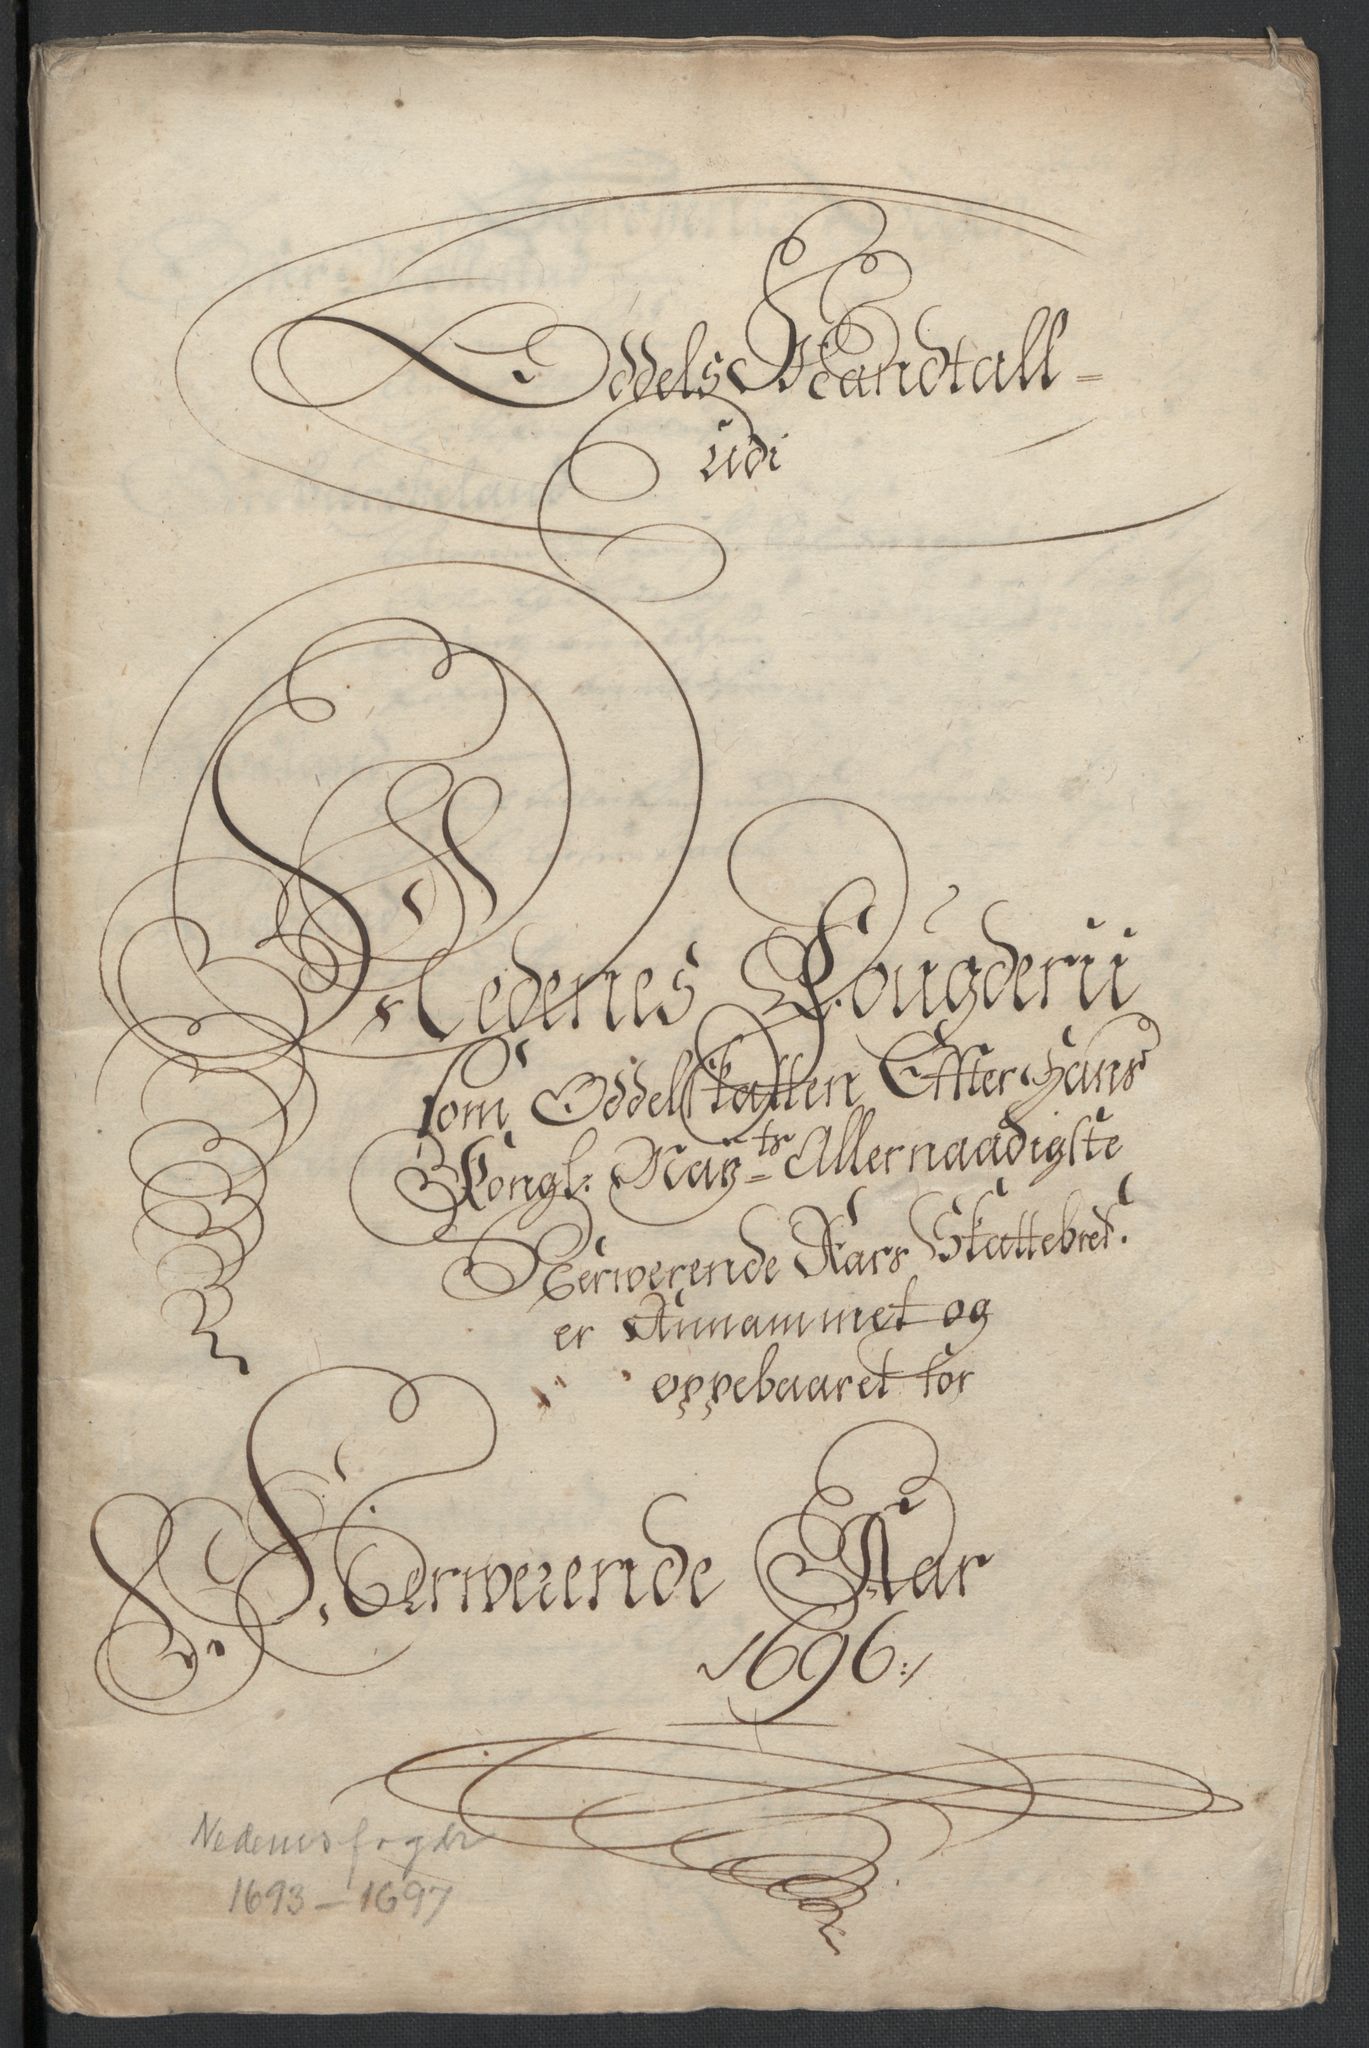 Oddels Mandtall=
udi
Nedenes Fougderii
som Oddelskatten Effter Hans
Kongl: May=ts Allernaadigste
Nerwerende Aars Skattebref:
er Annammet og
oppebaaret for
Nerwerende Aar
1696:/
Nedenes fogderi
1693 - 1697